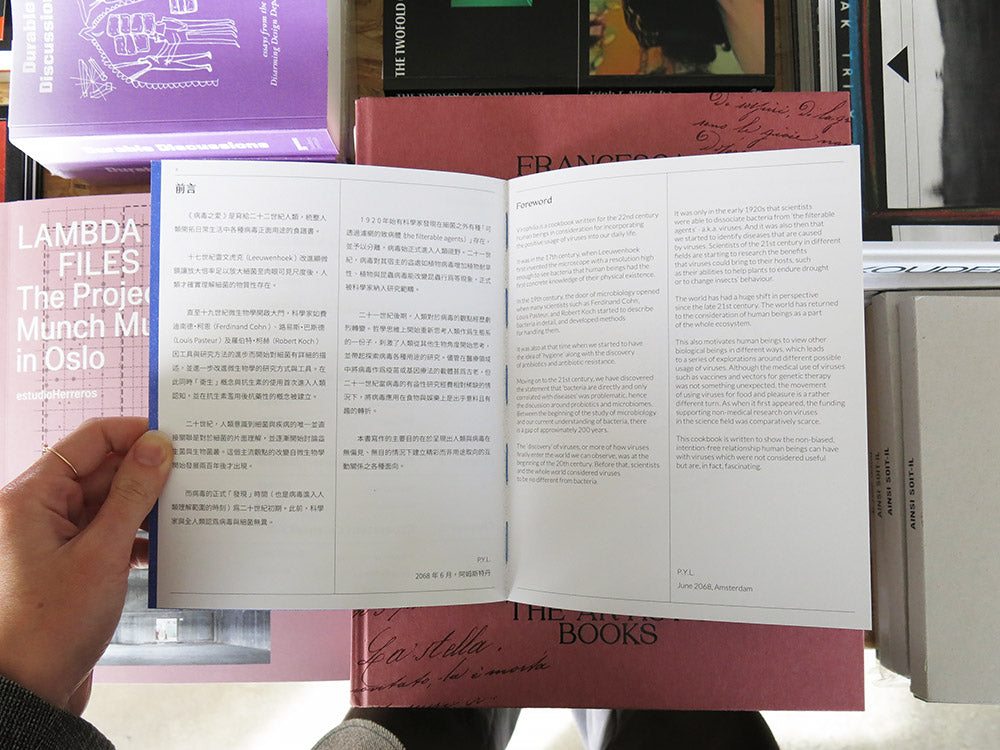 Durable
Discussions
essays from the
Disarming Design Dep
Durable Discussions
Durable Discussions
THE TWOFOLD
THE TWOFOLD COMMITMENT
Trinh T. Minh-ha
LAMBDA
FILES
The Proje
Munch Mu
in Oslo
estudioHerreros
前言
《病毒之愛》是寫給二十二世紀人類，統整人
類開拓日常生活中各種病毒正面用途的食譜書。
十七世紀雷文虎克 (Leeuwenhoek) 改進顯微
鏡讓放大倍率足以放大細菌至肉眼可見尺度後，人
類才確實理解細菌的物質性存在。
直至十九世紀微生物學開啟大門，科學家如費
迪南德·柯恩 (Ferdinand Cohn)、路易斯·巴斯德
(Louis Pasteur) 及羅伯特·柯赫 (Robert Koch)
因工具與研究方法的進步而開始對細菌有詳細的描
述，並進一步改進微生物學的研究方式與工具。在
此同時「衛生」概念與抗生素的使用首次進入人類
認知，並在抗生素濫用後抗藥性的概念被建立。
二十世紀，人類意識到細菌與疾病的唯一並直
接關聯是對於細菌的片面理解，並逐漸開始討論益
生菌與生物叢。這個主流觀點的改變自微生物學
開始發展兩百年後才出現。
而病毒的正式「發現」時間（也是病毒進入人
類理解範圍的時刻）為二十世紀初期。此前，科學
家與全人類認為病毒與細菌無異。
1920年始有科學家發現在細菌之外有種「可
透過濾網的致病體 (the filterable agents)」存在，
並予以分離，病毒始正式進入人類視野。二十一世
紀，病毒對其宿主的益處如植物病毒增加植物耐旱
性、植物與昆蟲病毒能改變昆蟲行為等現象，正式
被科學家納入研究範疇。
二十一世紀後期，人類對於病毒的觀點經歷劇
烈轉變。哲學思維上開始重新思考人類作為生態系
的一份子，刺激了人類從其他生物角度開始思考，
並帶起探索病毒各種用途的研究。儘管在醫療領域
中將病毒作為疫苗或基因療法的載體甚為古老，但
二十一世紀當病毒的有益性研究經費相對稀缺的情
況下，將病毒應用在食物與娛樂上是出乎意料且有
趣的轉折。
本書寫作的主要目的在於呈現出人類與病毒在
無偏見、無目的情況下建立精彩而非用途取向的互
動關係之各種面向。
P.Y.L.
2068 年 6 月，阿姆斯特丹
Foreword
Virophilia is a cookbook written for the 22nd century
human beings in consideration for incorporating
the positive usage of viruses into our daily life.
It was in the 17th century, when Leeuwenhoek
first invented the microscope with a resolution high
enough to see bacteria that human beings had the
first concrete knowledge of their physical existence.
In the 19th century, the door of microbiology opened
when many scientists such as Ferdinand Cohn,
Louis Pasteur, and Robert Koch started to describe
bacteria in detail, and developed methods
for handling them.
It was also at that time when we started to have
the idea of 'hygiene' along with the discovery
of antibiotics and antibiotic resistance.
Moving on to the 21st century, we have discovered
the statement that 'bacteria are directly and only
correlated with diseases' was problematic, hence
the discussion around probiotics and microbiomes.
Between the beginning of the study of microbiology
and our current understanding of bacteria, there
is a gap of approximately 200 years.
The 'discovery' of viruses, or more of how viruses
finally enter the world we can observe, was at the
beginning of the 20th century. Before that, scientists
and the whole world considered viruses
to be no different from bacteria
It was only in the early 1920s that scientists
were able to dissociate bacteria from 'the filterable
agents' - a.k.a. viruses. And it was also then that
we started to identify diseases that are caused by
viruses. Scientists of the 21st century in different
fields are starting to research the benefits
that viruses could bring to their hosts, such
as their abilities to help plants to endure drought
or to change insects' behaviour.
The world has had a huge shift in perspective
since the late 21st century. The world has returned
to the consideration of human beings as a part
of the whole ecosystem.
This also motivates human beings to view other
biological beings in different ways, which leads
to a series of explorations around different possible
usage of viruses. Although the medical use of viruses
such as vaccines and vectors for genetic therapy
was not something unexpected, the movement
of using viruses for food and pleasure is a rather
different turn. As when it first appeared, the funding
supporting non-medical research on viruses
in the science field was comparatively scarce.
This cookbook is written to show the non-biased,
intention-free relationship human beings can have
with viruses which were not considered useful
but are, in fact, fascinating.
P.Y.L.
June 2068, Amsterdam
THE ARTIST
BOOKS
La stella.
AINSI SOIT-IL
AINSI SOIT-IL
AINSI SOIT-IL